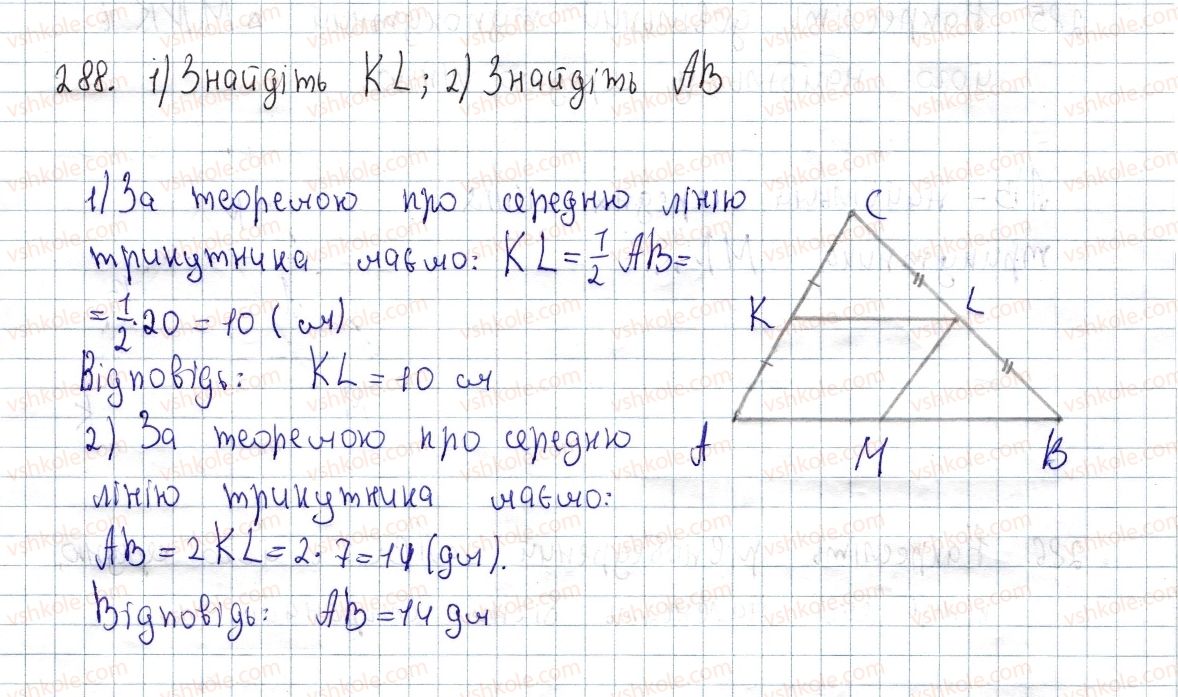 288. 1) Знайдіть KL; 2) Знайдіть AB
1) За теоремою про середню лінію
трикутника маємо: KL = 1/2 AB =
= 1/2 · 20 = 10 (см)
Відповідь: KL = 10 см
2) За теоремою про середню
лінію трикутника маємо:
AB = 2KL = 2 · 7 = 14 (дм).
Відповідь: AB = 14 дм
C
K
L
A
M
B
vshkole.com